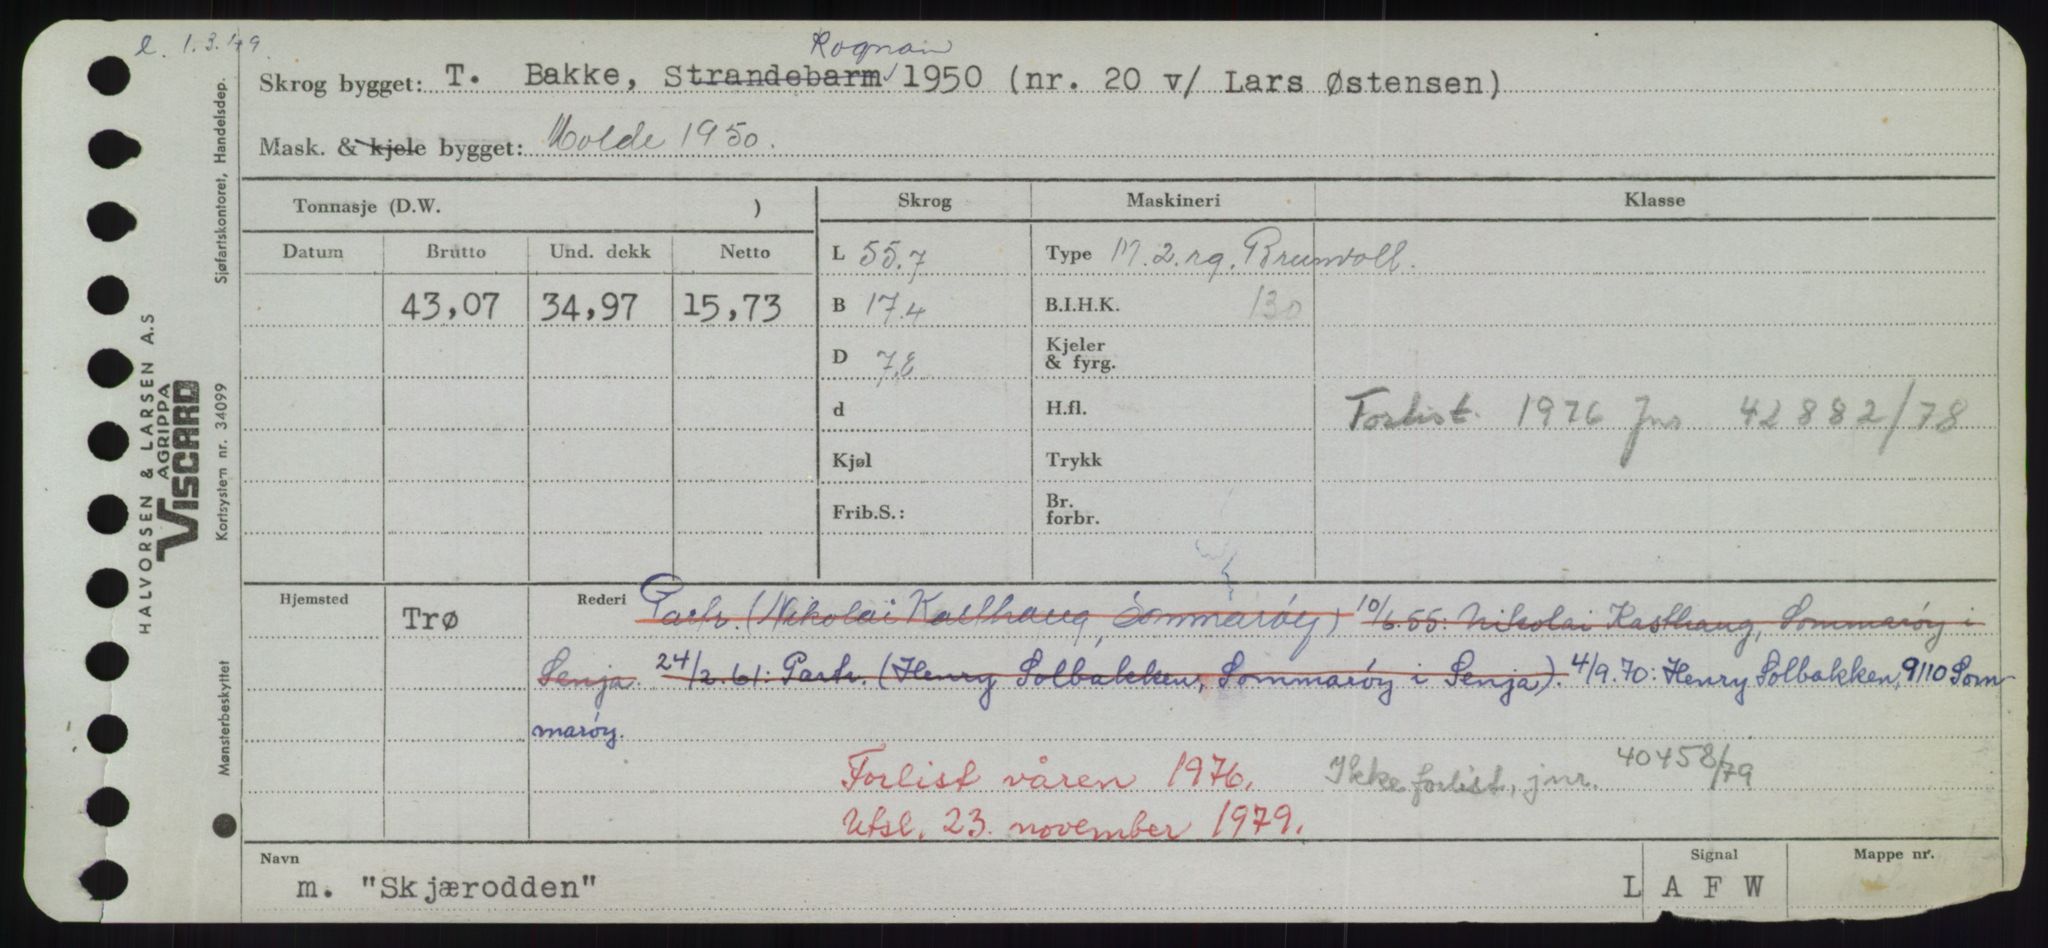 l. 1.3.49.
Rognan
Skrog bygget: T. Bakke, Strandebarm 1950 (nr. 20 v/ Lars Østensen)
Mask. & kjele bygget: Molde 1950.
Tonnasje (D.W. )
Skrog
Maskineri
Klasse
Datum Brutto Und. dekk Netto
43,07 34,97 15,73
L 55.7
B 17.4
D 7.8
d
Kjøl
Frib.S.:
Type M. 2.rg. Brunvoll.
B.I.H.K. 130
Kjeler
& fyrg.
H.fl.
Trykk
Br.
forbr.
Forlist. 1976 Jnr 42882/78
Hjemsted Trø
Rederi Partr. (Nikolai Kasthaug, Sommarøy) 10/6.55: Nikolai Kasthaug, Sommarøy i
Senja. 24/2.61: Partr. (Henry Solbakken, Sommarøy i Senja). 4/9.70: Henry Solbakken, 9110 Som-
marøy.
Forlist våren 1976. Ikke forlist, jnr. 40458/79
Utsl. 23. november 1979.
Navn
m. "Skjærodden"
Signal
L A F W
Mappe nr.
HALVORSEN & LARSEN A.S
AGRIPPA
VISCARD
Sjøfartskontoret, Handelsdep.
Kortsystem nr. 34099
Mønsterbeskyttet